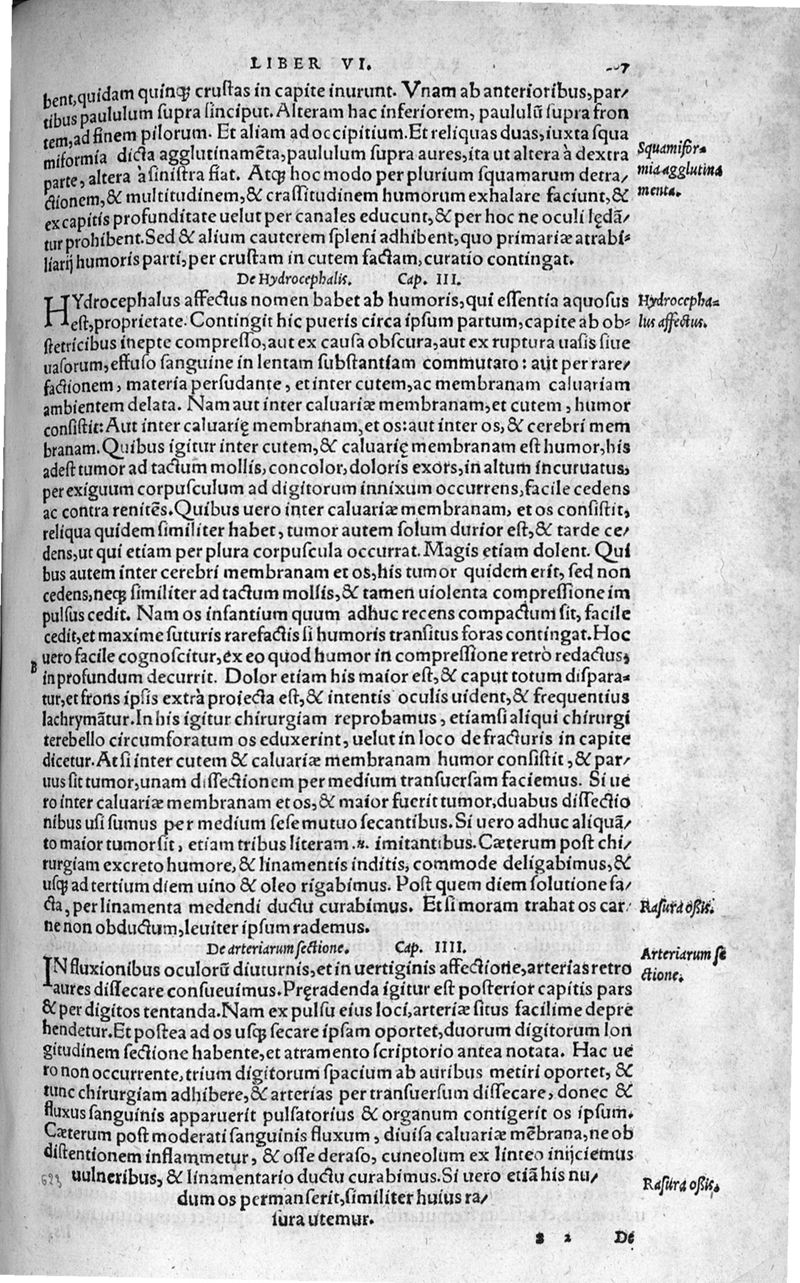 LIBER VI.
bent, quidam quinq; crustas in capite inurunt. Vnam ab anterioribus, par/
tibus paululum supra sinciput. Alteram hac inferiorem, paululũ supra fron
tem, ad finem pilorum. Et aliam ad occipitium. Et reliquas duas, iuxta squa
miformia dicta agglutinamẽta, paululum supra aures, ita ut altera à dextra
Squamifor-
parte, altera à sinistra fiat. Atq; hoc modo per plurium squamarum detra/
mia agglutina
ctionem, & multitudinem, & crassitudinem humorum exhalare faciunt, &
menta.
ex capitis profunditate uelut per canales educunt, & per hoc ne oculi lędã/
tur prohibent. Sed & alium cauterem spleni adhibent, quo primariæ atrabi-
liarij humoris parti, per crustam in cutem factam, curatio contingat.
De Hydrocephalis. Cap. III.
HYdrocephalus affectus nomen babet ab humoris, qui essentia aquosus
Hydrocepha-
est, proprietate. Contingit hic pueris circa ipsum partum, capite ab ob-
lus affectus.
stetricibus inepte compresso, aut ex causa obscura, aut ex ruptura uasis siue
uasorum, effuso sanguine in lentam substantiam commutato: aut per rare/
factionem, materia persudante, et inter cutem, ac membranam caluariam
ambientem delata. Nam aut inter caluariæ membranam, et cutem, humor
consistit: Aut inter caluarię membranam, et os: aut inter os, & cerebri mem
branam. Quibus igitur inter cutem, & caluarię membranam est humor, his
adest tumor ad tactum mollis, concolor, doloris exors, in altum incuruatus,
per exiguum corpusculum ad digitorum innixum occurrens, facile cedens
ac contra renitẽs. Quibus uero inter caluariæ membranam, et os consistit,
reliqua quidem similiter habet, tumor autem solum durior est, & tarde ce/
dens, ut qui etiam per plura corpuscula occurrat. Magis etiam dolent. Qui
bus autem inter cerebri membranam et os, his tumor quidem erit, sed non
cedens, neq; similiter ad tactum mollis, & tamen uiolenta compressione im
pulsus cedit. Nam os infantium quum adhuc recens compactum sit, facile
cedit, et maxime suturis rarefactis si humoris transitus foras contingat. Hoc
uero facile cognoscitur, ex eo quod humor in compressione retrò redactus,
B
in profundum decurrit. Dolor etiam his maior est, & caput totum dispara-
tur, et frons ipsis extrà proiecta est, & intentis oculis uident, & frequentius
lachrymãtur. In his igitur chirurgiam reprobamus, etiamsi aliqui chirurgi
terebello circumforatum os eduxerint, uelut in loco de fracturis in capite
dicetur. At si inter cutem & caluariæ membranam humor consistit, & par/
uus sit tumor, unam dissectionem per medium transuersam faciemus. Si ue
ro inter caluariæ membranam et os, & maior fuerit tumor, duabus dissectio
nibus usi sumus per medium sese mutuo secantibus. Si uero adhuc aliquã/
to maior tumor sit, etiam tribus literam .н. imitantibus. Cæterum post chi/
rurgiam excreto humore, & linamentis inditis, commode deligabimus, &
usq; ad tertium diem uino & oleo rigabimus. Post quem diem solutione fa/
cta, per linamenta medendi ductu curabimus. Et si moram trahat os car/
Rasura ossis.
ne non obductum, leuiter ipsum rademus.
De arteriarum sectione. Cap. IIII.
Arteriarum se
INfluxionibus oculorũ diuturnis, et in uertiginis affectione, arterias retro
ctione.
aures dissecare consueuimus. Pręradenda igitur est posterior capitis pars
& per digitos tentanda. Nam ex pulsu eius loci, arteriæ situs facilime depre
hendetur. Et postea ad os usq; secare ipsam oportet, duorum digitorum lon
gitudinem sectione habente, et atramento scriptorio antea notata. Hac ue
ro non occurrente, trium digitorum spacium ab auribus metiri oportet, &
tunc chirurgiam adhibere, & arterias per transuersum dissecare, donec &
fluxus sanguinis apparuerit pulsatorius & organum contigerit os ipsum.
Cæterum post moderati sanguinis fluxum, diuisa caluariæ mẽbrana, ne ob
distentionem inflammetur, & osse deraso, cuneolum ex linteo inijciemus
uulneribus, & linamentario ductu curabimus. Si uero etiã his nu/
dum os permanserit, similiter huius ra/
Rasura ossis.
sura utemur.
s 2 De